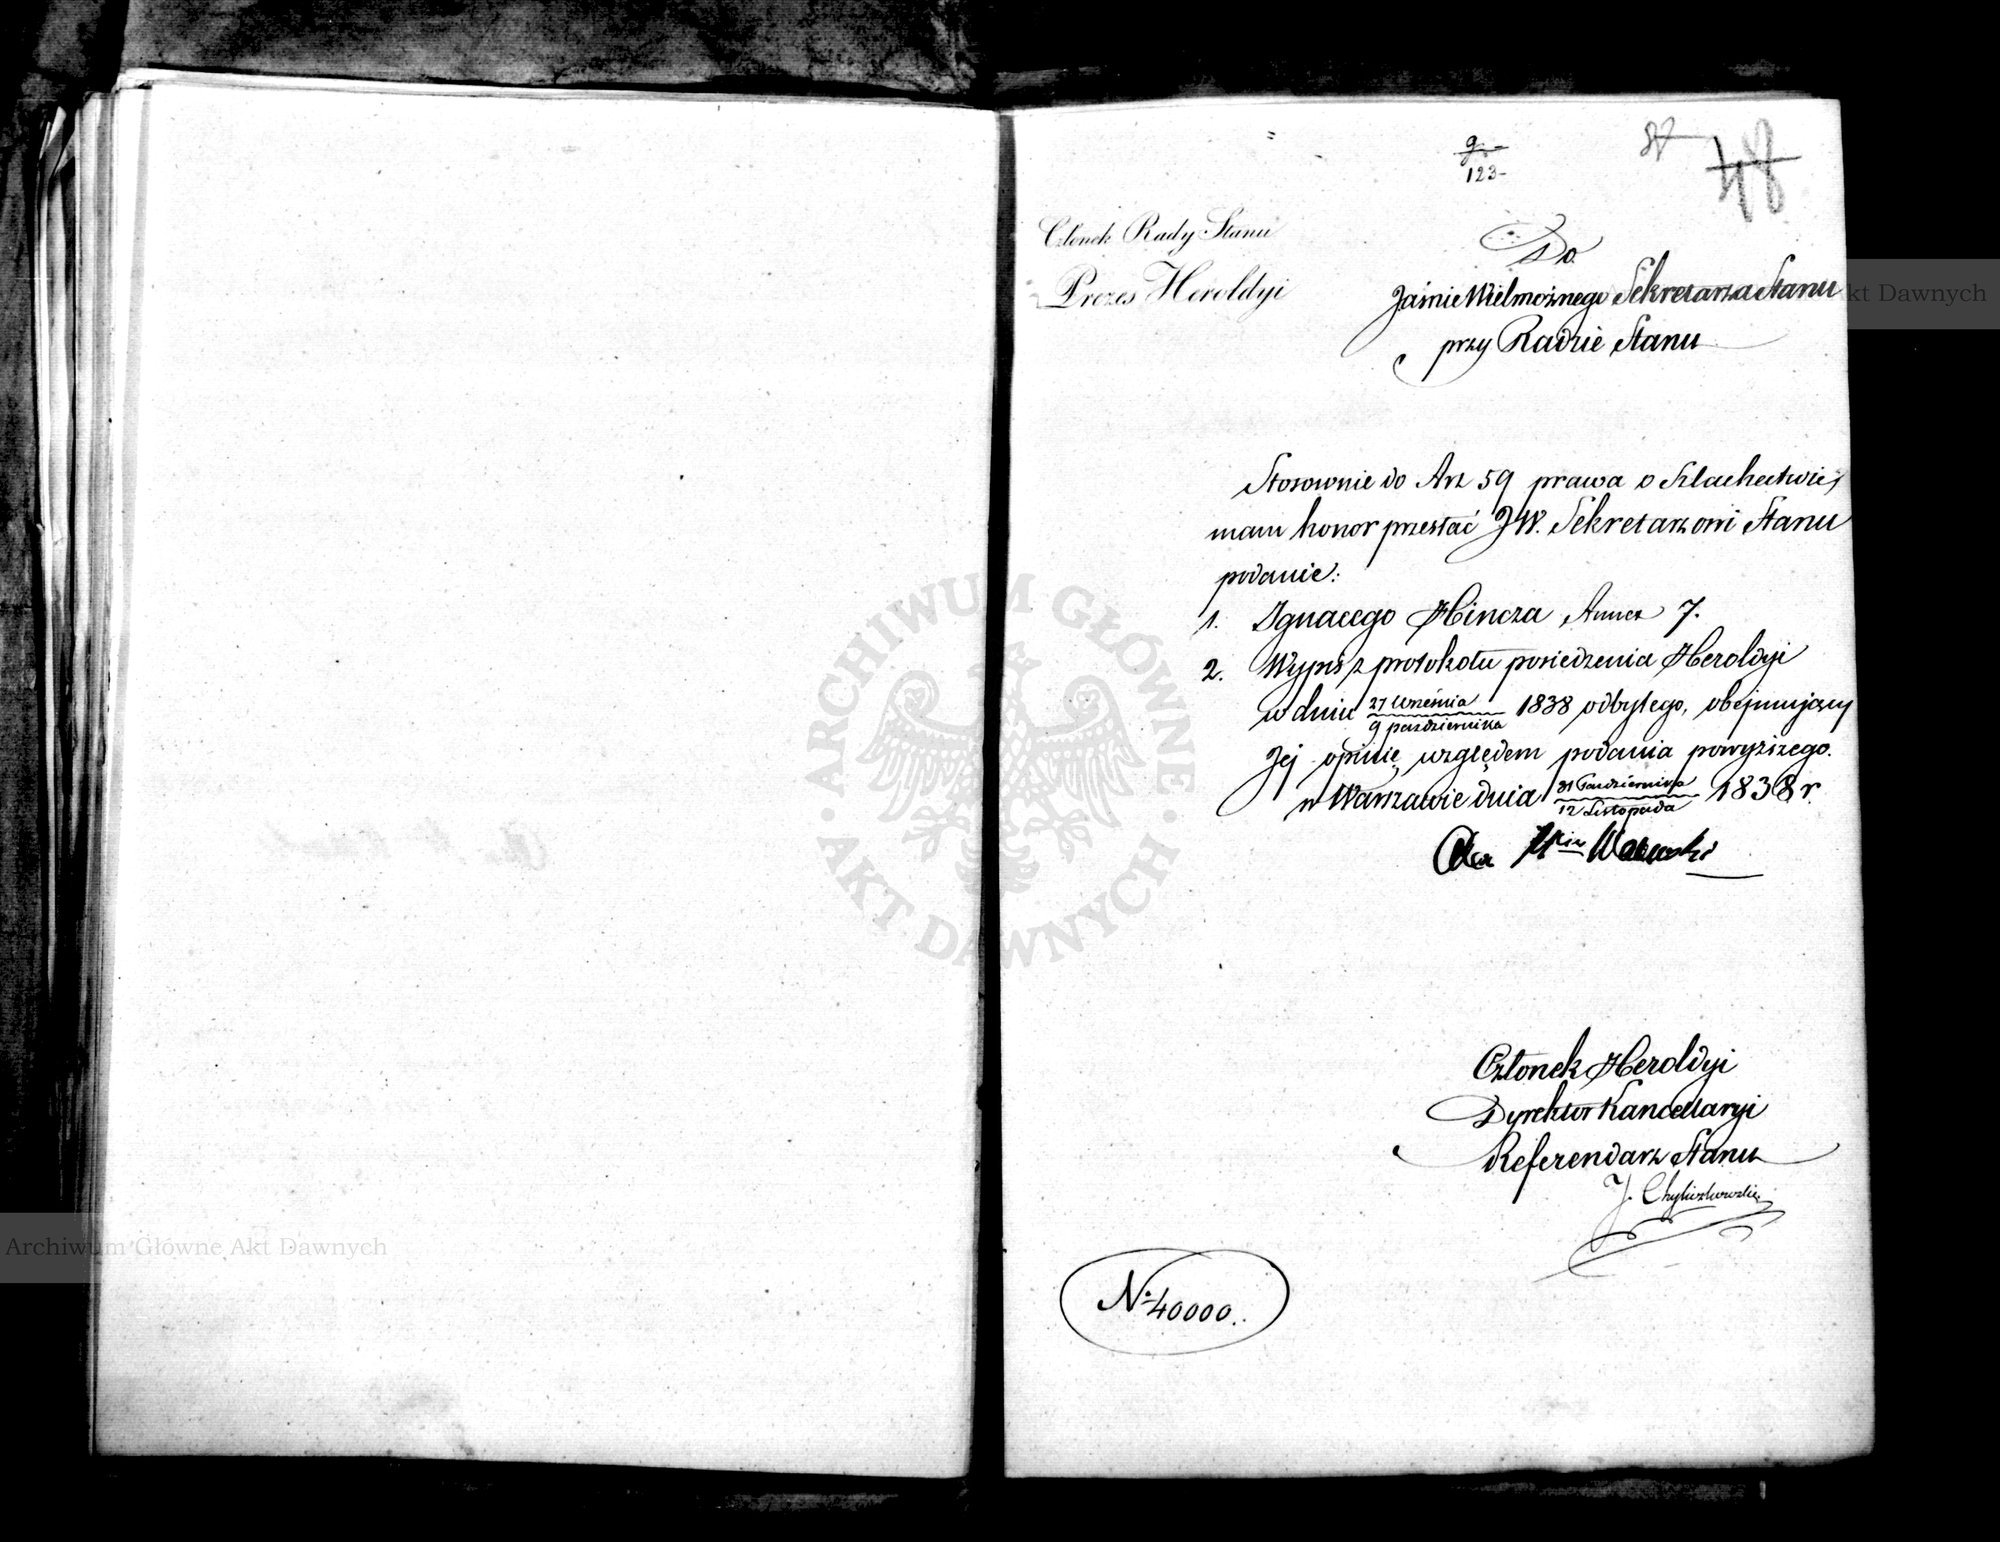 9
123-
87
48
Członek Rady Stanu
Prezes Heroldyi
Do
JaśnieWielmożnego Sekretarza Stanu
przy Radzie Stanu
Stosownie do Art 59 prawa o Szlachectwie,
mam honor przesłać JW. Sekretarzowi Stanu
podanie:
1. Ignacego Hincza, Annex 7.
2. Wypis z protokołu posiedzenia Heroldyi
w dniu 27 Września / 9 października 1838 odbytego, obejmujący
Jej opinię względem podania powyższego.
w Warszawie dnia 31 Października / 12 Listopada 1838 r.
Walewski
Członek Heroldyi
Dyrektor Kancellaryi
Referendarz Stanu
J. Chyliczkowski
N. 40000.
ARCHIWUM GŁÓWNE
AKT DAWNYCH
Archiwum Główne Akt Dawnych
kt Dawnych